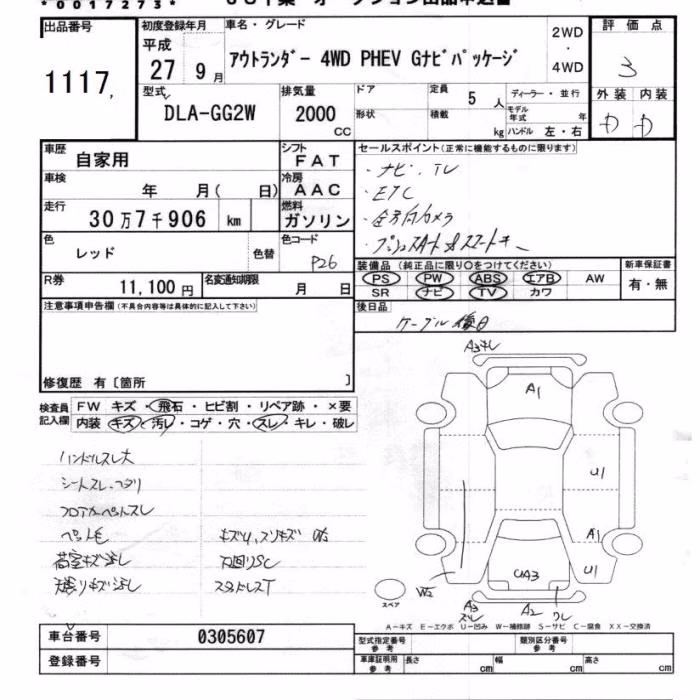 *0017273*
出品番号
1117
初度登録年月
平成
27 9月
車名・グレード
アウトランダー 4WD PHEV Gナビパッケージ
2WD
・
4WD
評価点
3
外装 内装
型式
DLA-GG2W
排気量
2000
CC
ドア
形状
定員
5人
積載
kg
ディーラー・並行
モデル年式 年
ハンドル 左・右
車歴
自家用
シフト
FAT
車検
年 月( 日)
冷房
AAC
走行
30万7千906 km
燃料
ガソリン
色
レッド
色替
色コード
P26
R券
11,100円
名変通知期限
月 日
セールスポイント(正常に機能するものに限ります)
・ナビ、TV
・ETC
・全方向カメラ
装備品(純正品に限り○をつけてください)
PS PW ABS エアB AW
SR ナビ TV カワ
新車保証書
有・無
後日品
ケーブル 後日
注意事項申告欄(不具合内容等は具体的に記入して下さい)
修復歴 有〔箇所 〕
検査員記入欄
FW キズ・飛石・ヒビ割・リペア跡・×要
内装 キズ・汚レ・コゲ・穴・スレ・キレ・破レ
ハンドルスレ大
シートスレ、
フロアカーペットスレ
ペット毛
荷室キズ汚レ
内張りキズ汚レ
下回りSC
スタッドレスT
A1
U1
A1
U1
UA3
W2
A3
スレ
A2
ワレ
スペア
A-キズ E-エクボ U-凹み W-補修跡 S-サビ C-腐食 XX-交換済
車台番号
0305607
登録番号
型式指定番号
参考
類別区分番号
参考
車庫証明用
参考
長さ cm
幅 cm
高さ cm